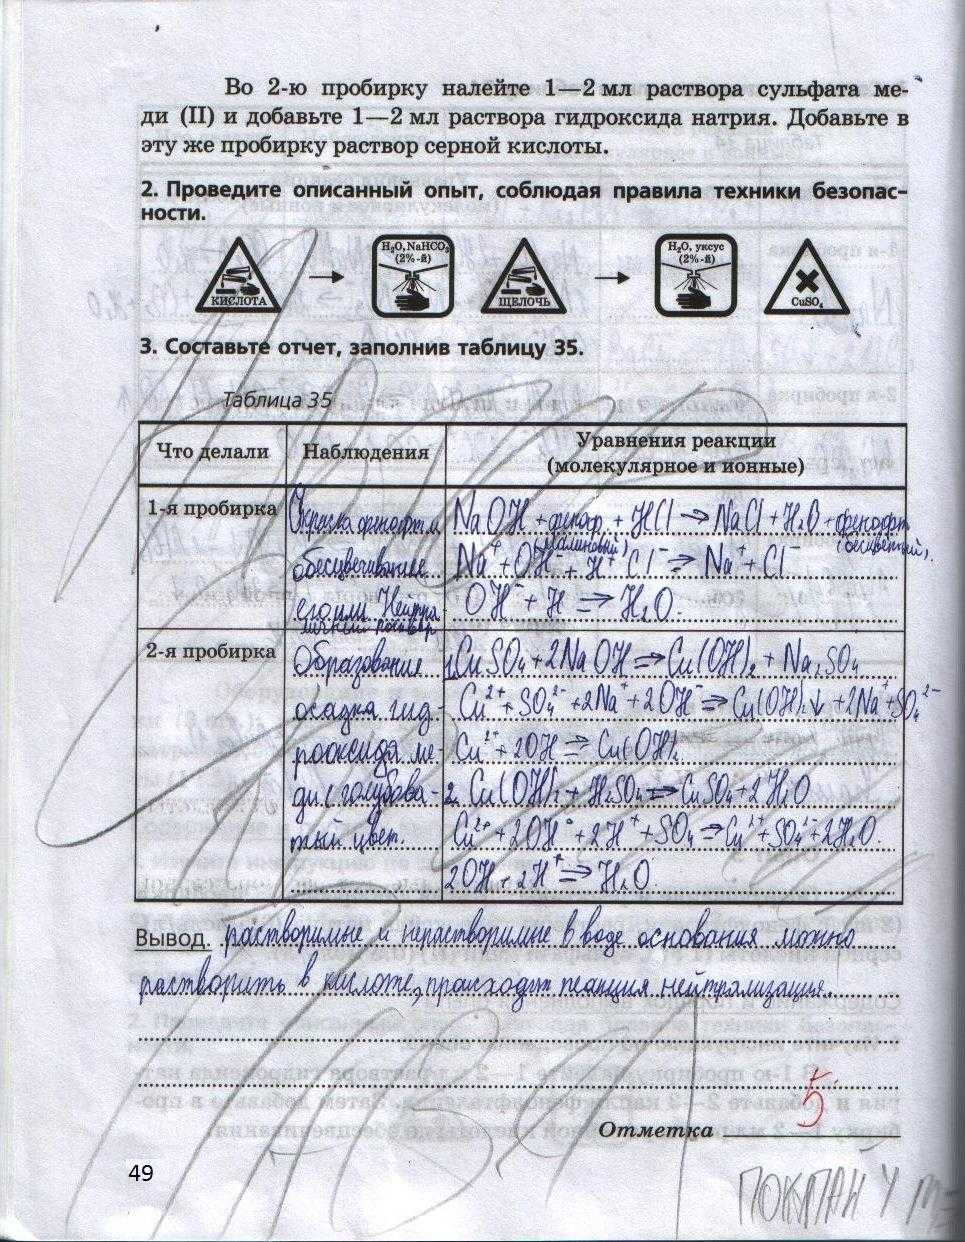 Во 2-ю пробирку налейте 1—2 мл раствора сульфата ме-
ди (II) и добавьте 1—2 мл раствора гидроксида натрия. Добавьте в
эту же пробирку раствор серной кислоты.
2. Проведите описанный опыт, соблюдая правила техники безопас-
ности.
КИСЛОТА
H₂O, NaHCO₃
(2%-й)
ЩЕЛОЧЬ
H₂O, уксус
(2%-й)
CuSO₄
3. Составьте отчет, заполнив таблицу 35.
Таблица 35
Что делали
Наблюдения
Уравнения реакции
(молекулярное и ионные)
1-я пробирка
Окраска фенофт.
обесцвечивание
его или
раствор
NaOH + фенор. + HCl ⇒ NaCl + H₂O + фенофт
(малиновый) (бесцветный).
Na⁺ + OH⁻ + H⁺ Cl⁻ ⇒ Na⁺ + Cl⁻
OH⁻ + H ⇒ H₂O.
2-я пробирка
Образование
осадка гид-
рооксида ме-
ди с голубова-
тый. цвет.
1. CuSO₄ + 2NaOH ⇒ Cu(OH)₂ + Na₂SO₄
Cu²⁺ + SO₄²⁻ + 2Na⁺ + 2OH⁻ ⇒ Cu(OH)₂↓ + 2Na⁺ + SO₄²⁻
Cu²⁺ + 2OH ⇒ Cu(OH)₂
2. Cu(OH)₂ + H₂SO₄ ⇒ CuSO₄ + 2H₂O
Cu²⁺ + 2OH⁻ + 2H⁺ + SO₄ ⇒ Cu²⁺ + SO₄²⁻ + 2H₂O
2OH + 2H⁺ ⇒ H₂O
Вывод. растворимые и нерастворимые в воде основания можно
растворить в кислоте, происходит реакция нейтрализация.
5
Отметка
49